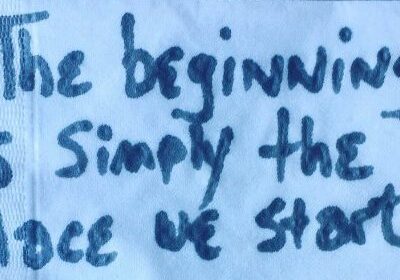 The beginning
s simply the
lace we start